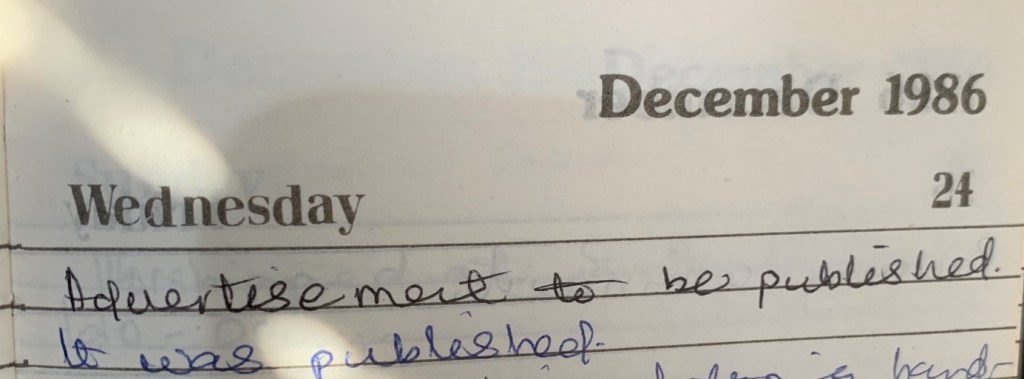 December 1986
Wednesday 24
Advertisement to be published.
It was published.
hand-